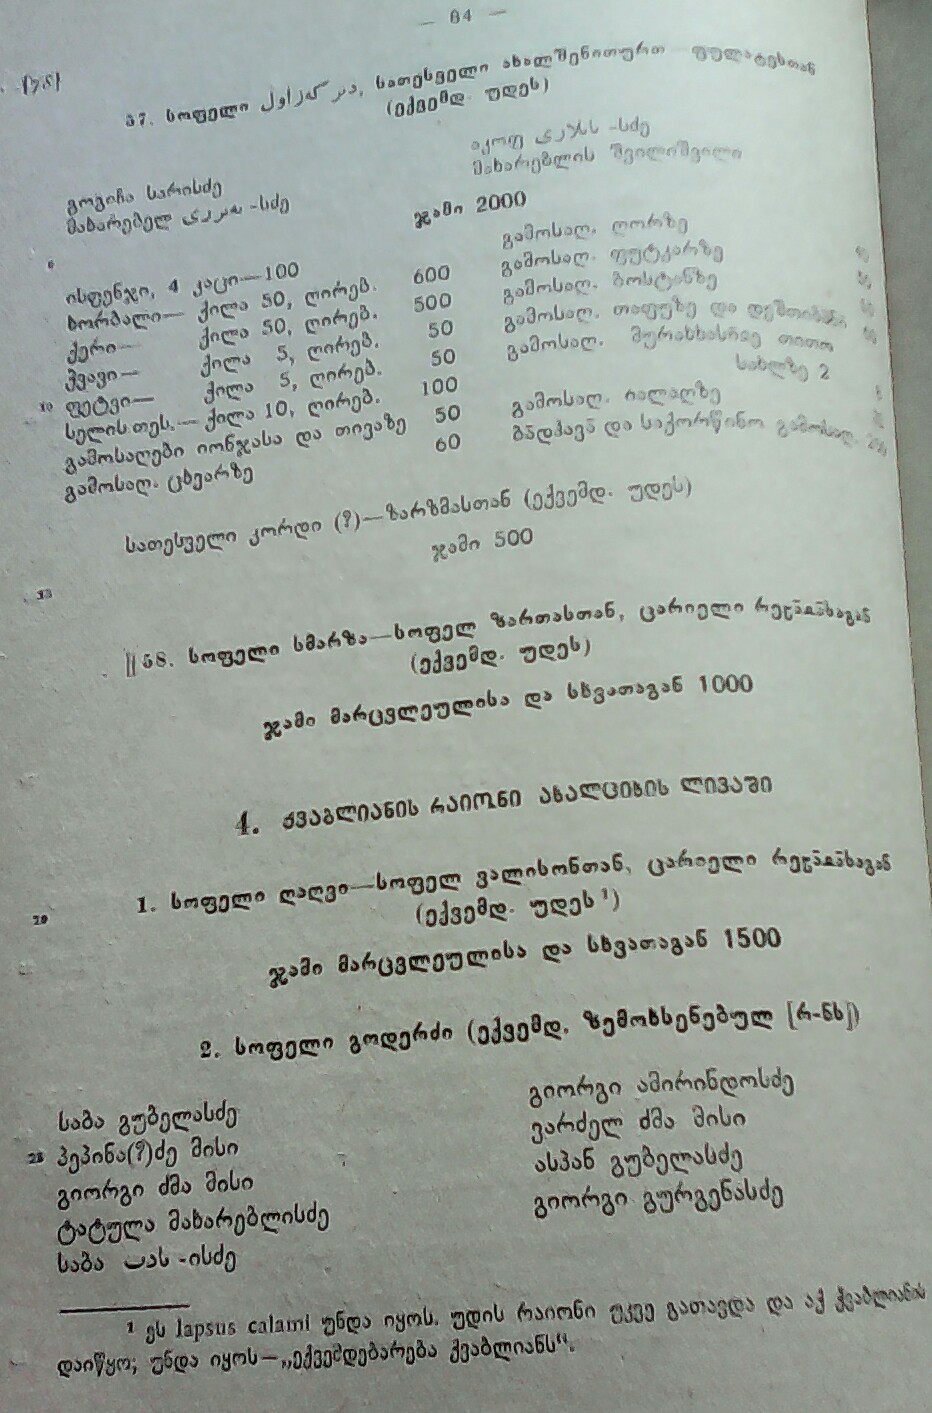 — 64 —
57. სოფელი, სათესველი ახალშენითურთ ფულატესთან
(ექვემდ. უდეს)
გოგიჩა სარისძე
მახარებელ -სძე
აკოფ -სძე
მახარებლის შვილიშვილი
ჯამი 2000
ისფენჯი, 4 კაცი—100
ხორბალი— ქილა 50, ღირებ. 600
ქერი— ქილა 50, ღირებ. 500
ჭვავი— ქილა 5, ღირებ. 50
10 ფეტვი— ქილა 5, ღირებ. 50
სელის თეს.— ქილა 10, ღირებ. 100
გამოსაღები იონჯასა და თივაზე 50
გამოსაღ. ცხვარზე 60
გამოსაღ. ღორზე
გამოსაღ. ფუტკარზე
გამოსაღ. ბოსტანზე
გამოსაღ. თაფუზე და
გამოსაღ. თითო
სახლზე 2
გამოსაღ. იალაღზე
ბადჰავა და საქორწინო გამოსაღ.
სათესველი კორდი (?)—ზარზმასთან (ექვემდ. უდეს)
ჯამი 500
58. სოფელი სმარზა—სოფელ ზართასთან, ცარიელი
(ექვემდ. უდეს)
ჯამი მარცვლეულისა და სხვათაგან 1000
4. ქვაბლიანის რაიონი ახალციხის ლივაში
1. სოფელი ღაღვი—სოფელ ვალისონთან, ცარიელი
20 (ექვემდ. უდეს ¹)
ჯამი მარცვლეულისა და სხვათაგან 1500
2. სოფელი გოდერძი (ექვემდ. ზემოხსენებულ [რ-ნს])
საბა გუბელასძე
25 პეპინა(?)ძე მისი
გიორგი ძმა მისი
ტატულა მახარებლისძე
საბა -ისძე
გიორგი ამირინდოსძე
ვარძელ ძმა მისი
ასპან გუბელასძე
გიორგი გურგენასძე
¹ ეს lapsus calami უნდა იყოს. უდის რაიონი უკვე გათავდა და აქ ქვაბლიანის
დაიწყო; უნდა იყოს—„ექვემდებარება ქვაბლიანს“.